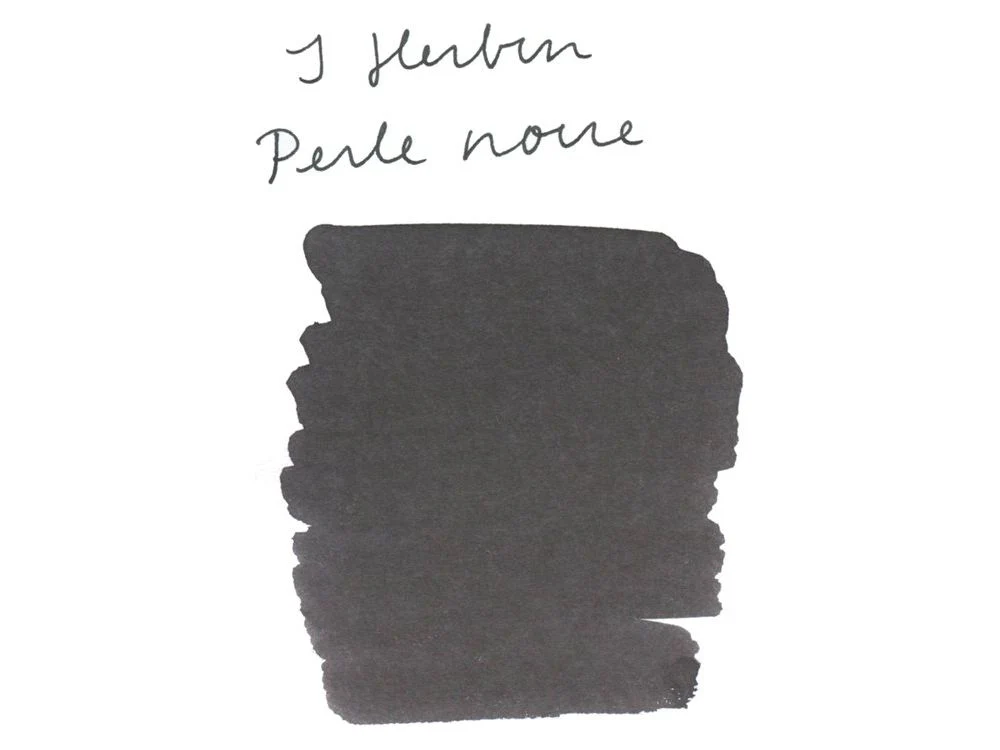 J Herbin
Perle noire